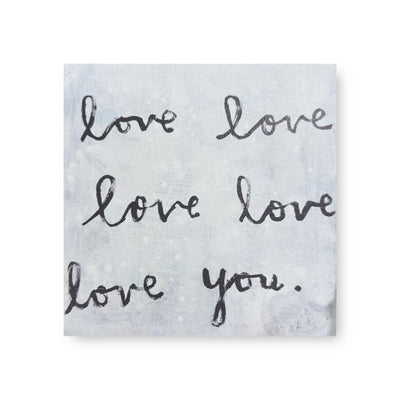 love love
love love
love you.